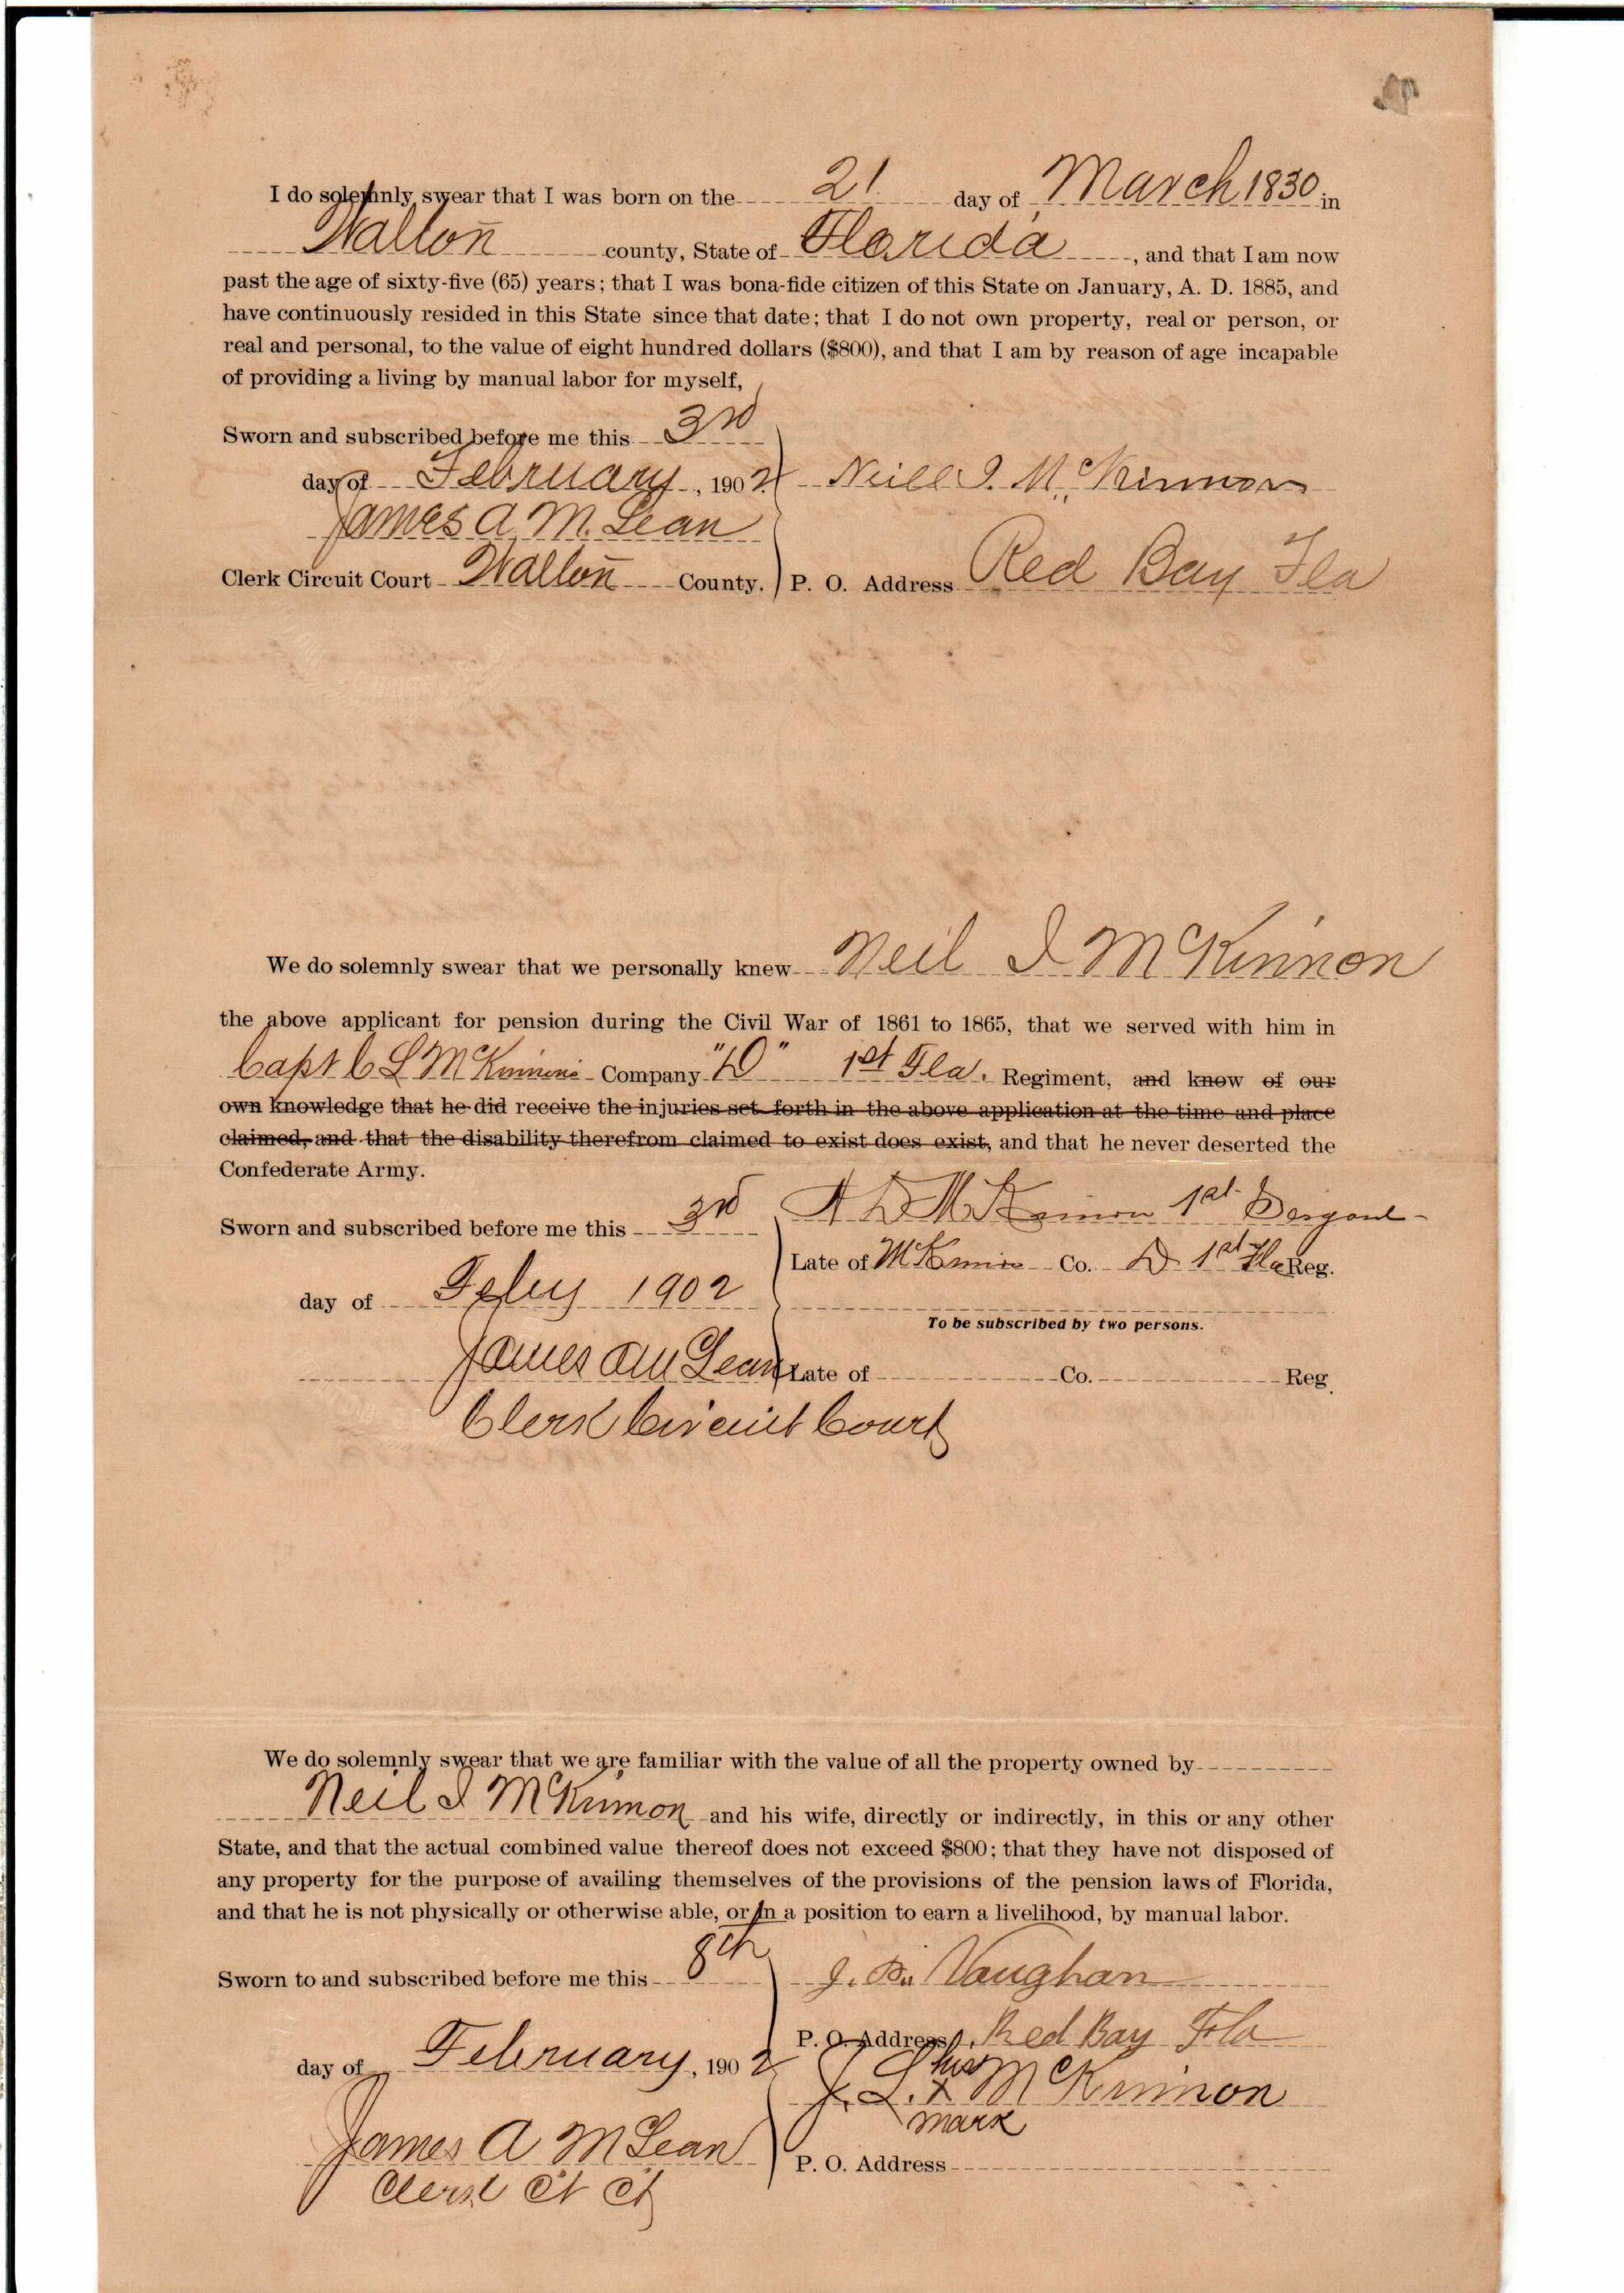 I do solemnly swear that I was born on the 21 day of March 1830 in
Walton county, State of Florida, and that I am now
past the age of sixty-five (65) years; that I was bona-fide citizen of this State on January, A. D. 1885, and
have continuously resided in this State since that date; that I do not own property, real or person, or
real and personal, to the value of eight hundred dollars ($800), and that I am by reason of age incapable
of providing a living by manual labor for myself,
Sworn and subscribed before me this 3rd
day of February, 1902 Neill I. McKinnon
James A McLean
Clerk Circuit Court Walton County. P. O. Address Red Bay Fla
We do solemnly swear that we personally knew Neil I McKinnon
the above applicant for pension during the Civil War of 1861 to 1865, that we served with him in
Capt C L McKinnons Company "D" 1st Fla. Regiment, and know of our
own knowledge that he did receive the injuries set forth in the above application at the time and place
claimed, and that the disability therefrom claimed to exist does exist, and that he never deserted the
Confederate Army.
Sworn and subscribed before me this 3rd A D McKinnon 1st
Late of McKinnon Co. D. 1st Fla Reg.
day of Feby 1902
To be subscribed by two persons.
James A McLean Late of Co. Reg.
Clerk Circuit Court
We do solemnly swear that we are familiar with the value of all the property owned by
Neil I McKinnon and his wife, directly or indirectly, in this or any other
State, and that the actual combined value thereof does not exceed $800; that they have not disposed of
any property for the purpose of availing themselves of the provisions of the pension laws of Florida,
and that he is not physically or otherwise able, or in a position to earn a livelihood, by manual labor.
Sworn to and subscribed before me this 8th J. Vaughan
P. O. Address Red Bay Fla
day of February, 1902
his
J. L. x McKinnon
mark
James A McLean P. O. Address
Clerk Ct Ct